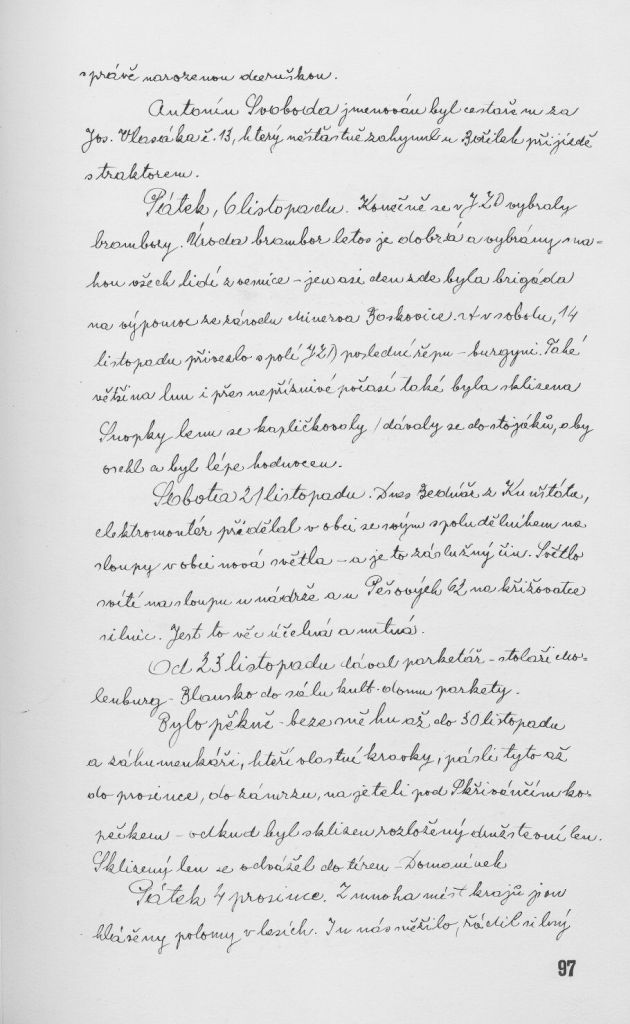 správě narozenou dceruškou.
Antonín Svoboda jmenován byl cestářem za
Jos. Vlasáka č. 13, který nešťastně zahynul u Bořitek při jízdě
s traktorem.
Pátek, 6 listopadu. Konečně se v JZD vybraly
brambory. Úroda brambor letos je dobrá a vybrány sna-
hou všech lidí z vesnice – jen asi den zde byla brigáda
na výpomoc ze závodu Minerva Boskovice. A v sobotu, 14
listopadu přivezlo s polí JZD poslední řepu – burgyni. Také
většina lnu i přes nepříznivé počasí také byla sklizena
Snopky lenu se kapličkovaly / dávaly se do stojáků, aby
oschl a byl lépe hodnocen.
Sobota 21 listopadu. Dnes Bednář z Kunštátu,
elektromontér přidělal v obci se svým spoludělníkem na
sloupy v obci nová světla – a je to záslužný čin. Světlo
svítí na sloupu u nádrže a u Pešových 62 na křižovatce
silnic. Jest to věc účelná a nutná.
Od 23 listopadu dával parketář – stolaři Mo-
lenburg – Blansko do sálu kult. domu parkety.
Bylo pěkně – beze sněhu až do 30 listopadu
a záhumenkáři, kteří vlastní kravky, pásli tyto až
do prosince, do zámrzu, na jeteli pod Skřivánčím ko-
pečkem – odkud byl sklizen rozložený družstevní len.
Sklizený len se odvážel do tíren – Domanínek
Pátek 4 prosince. Z mnoha míst krajů jsou
hlášeny polomy v lesích. I u nás sněžilo, řádil silný
97